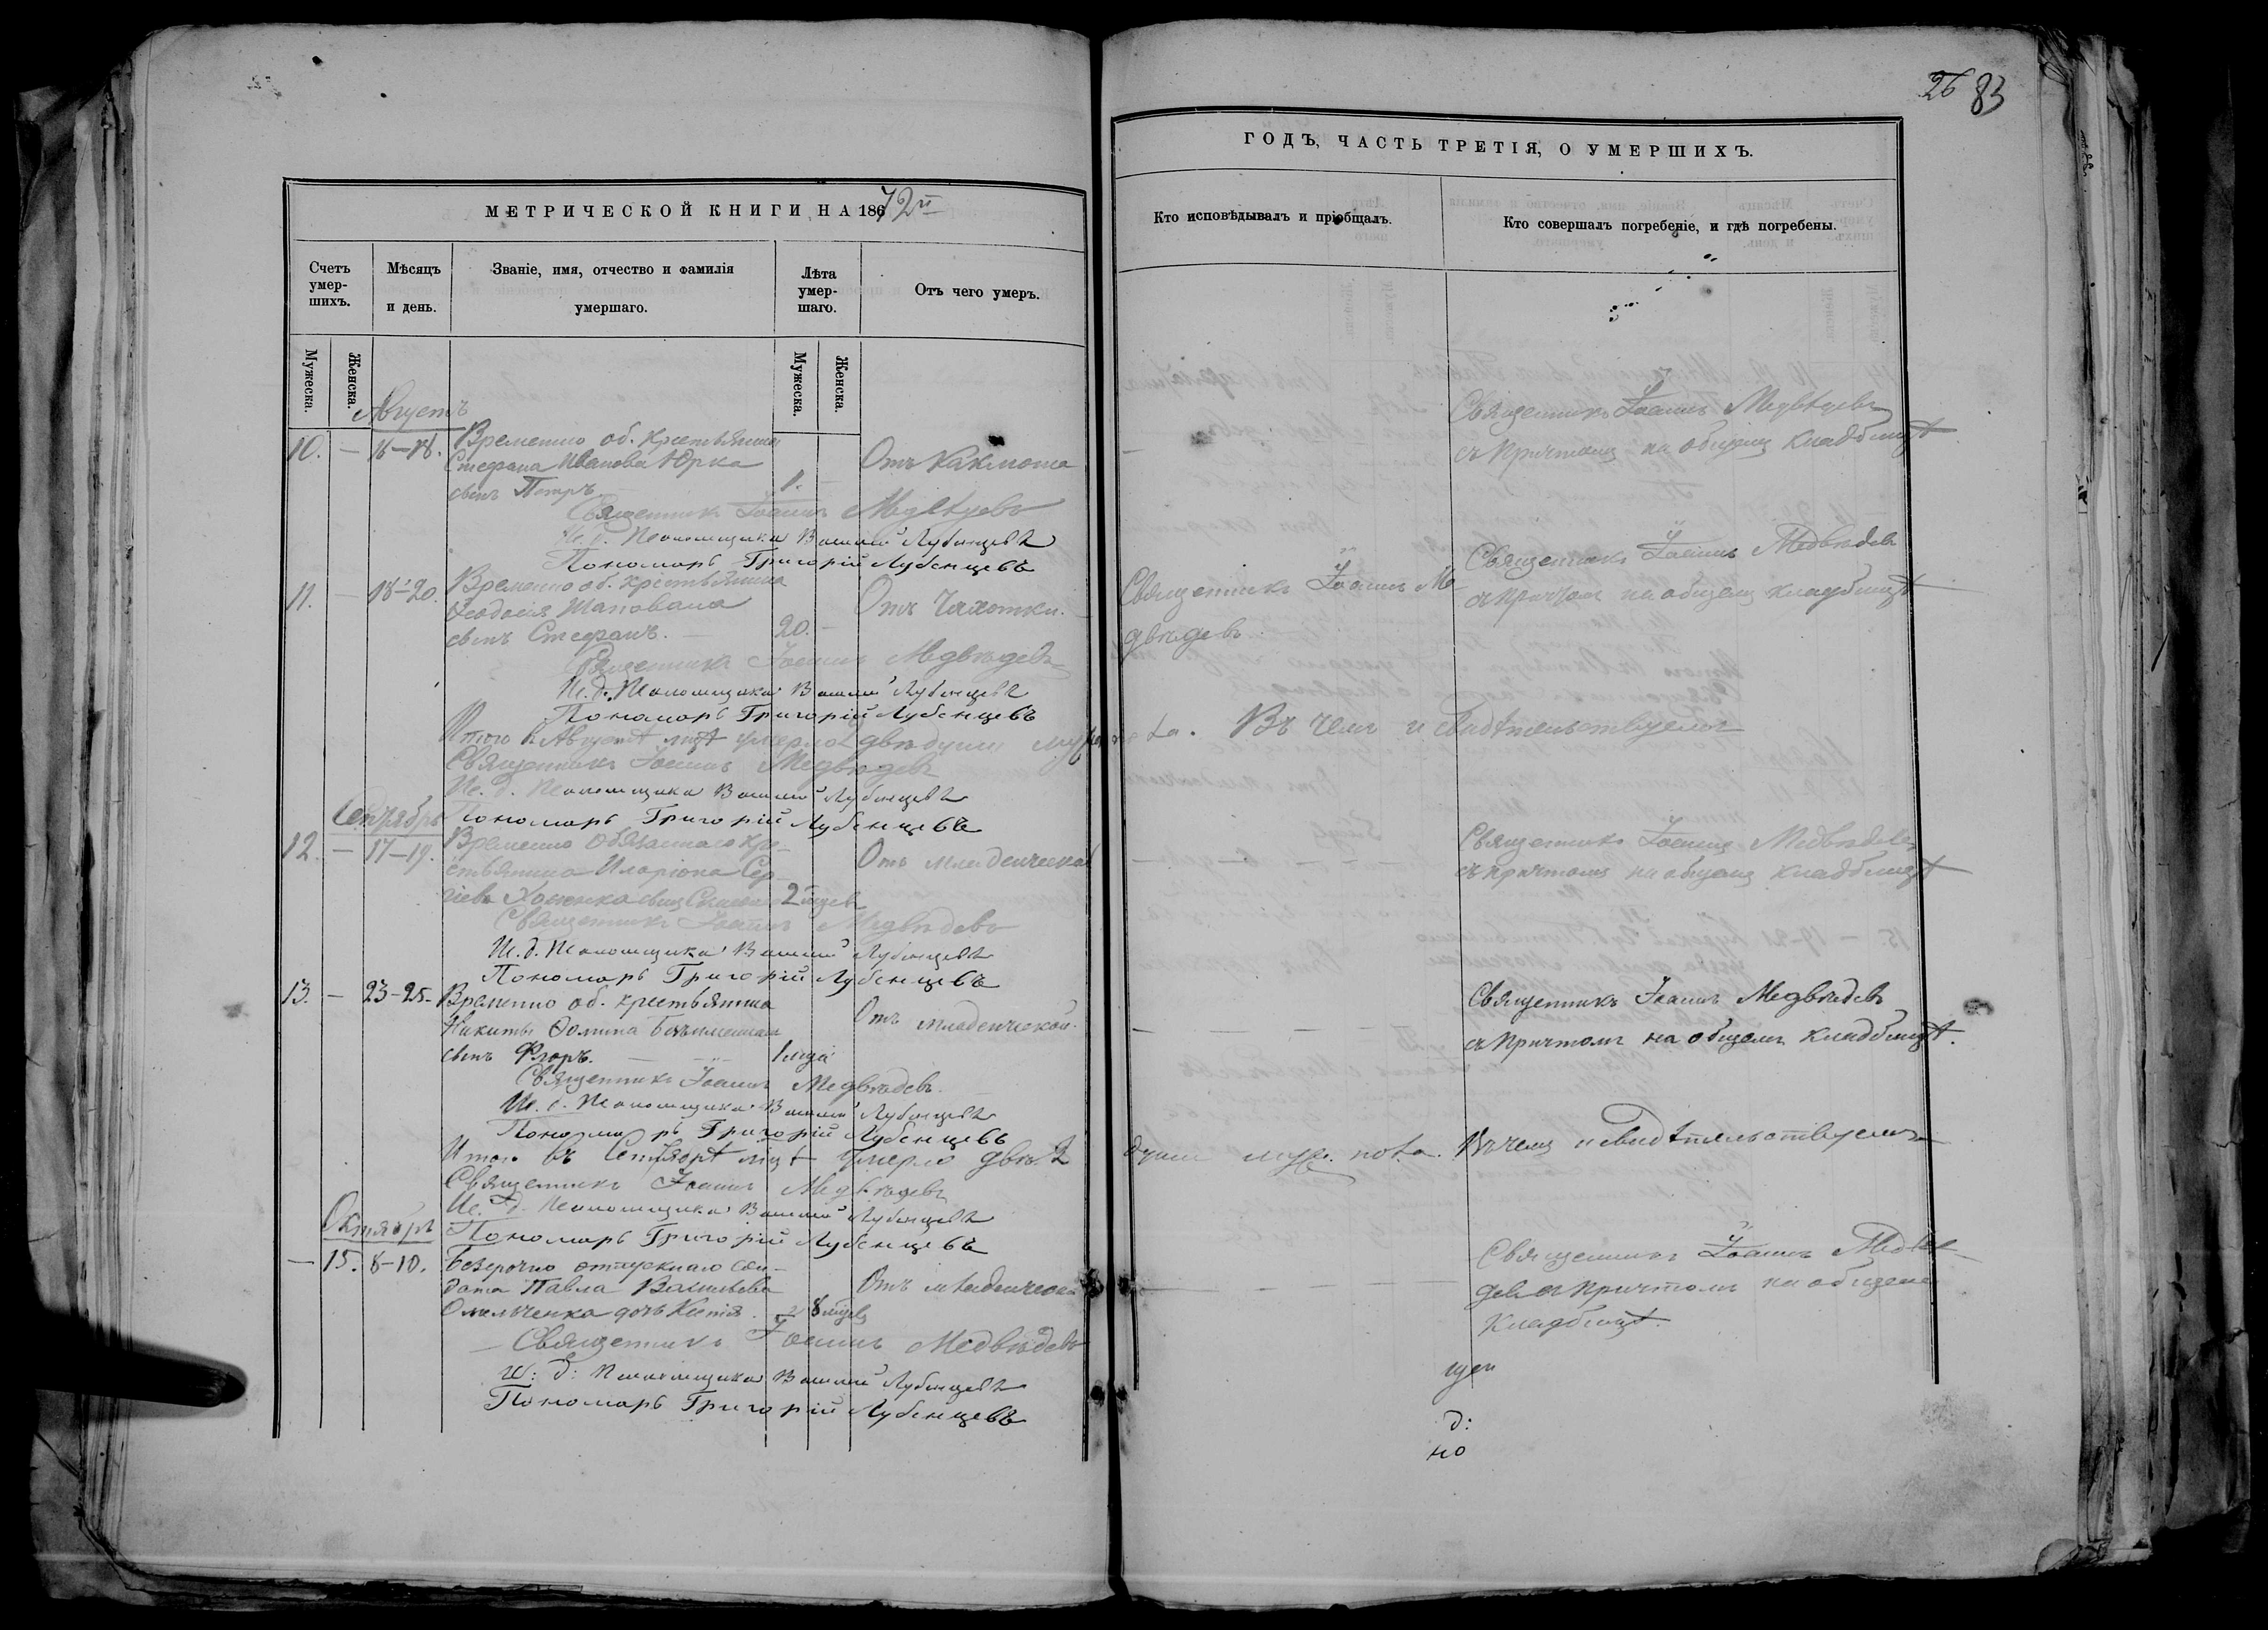 МЕТРИЧЕСКОЙ КНИГИ НА 1872й
Счетъ умер-шихъ.
Мѣсяцъ и день.
Званіе, имя, отчество и фамилія умершаго.
Лѣта умер-шаго.
Отъ чего умеръ.
Мужеска.
Женска.
Мужеска.
Женска.
Августъ
10. — 16-18. Временно об. крестьянина
Стефана Иванова Юрка
сынъ Петръ. 1. Отъ
Священникъ Іоаннъ Медвѣдевъ
И. д. Псаломщика Василій Лубенцевъ
Пономарь Григорій Лубенцевъ
11. — 18-20. Временно об. крестьянина
Ѳеодосія Шаповала Отъ Чахотки.
сынъ Стефанъ. — 20. —
Священникъ Іоаннъ Медвѣдевъ
И. д. Псаломщика Василій Лубенцевъ
Пономарь Григорій Лубенцевъ
Итого въ Августѣ мцѣ умерло двѣ души муж.
Священникъ Іоаннъ Медвѣдевъ
И. д. Псаломщика Василій Лубенцевъ
Пономарь Григорій Лубенцевъ
Сентябрь
12. — 17-19. Временно обязаннаго кре-
стьянина Иларіона Сер- Отъ младенческой
гіева сынъ 2 мцев
Священникъ Іоаннъ Медвѣдевъ
И. д. Псаломщика Василій Лубенцевъ
Пономарь Григорій Лубенцевъ
13. — 23-25. Временно об. крестьянина
Никиты Ѳомина Отъ младенческой.
сынъ Флоръ. 1 мца
Священникъ Іоаннъ Медвѣдевъ.
И. д. Псаломщика Василій Лубенцевъ
Пономарь Григорій Лубенцевъ
Итого въ Сентябрѣ мцѣ умерло двѣ. 2
Священникъ Іоаннъ Медвѣдевъ
И. д. Псаломщика Василій Лубенцевъ
Пономарь Григорій Лубенцевъ
Октябрь
— 15. 8-10. Безсрочно отпускнаго сол-
дата Павла Васильева Отъ младенческой
Омельченка дочь 8 мцев
Священникъ Іоаннъ Медвѣдевъ
И. д. Псаломщика Василій Лубенцевъ
Пономарь Григорій Лубенцевъ
26 83
ГОДЪ, ЧАСТЬ ТРЕТІЯ, О УМЕРШИХЪ.
Кто исповѣдывалъ и пріобщалъ.
Кто совершалъ погребеніе, и гдѣ погребены.
Священникъ Іоаннъ Медвѣдевъ
съ причтомъ на общемъ кладбищѣ
Священникъ Іоаннъ Ме-
двѣдевъ.
Священникъ Іоаннъ Медвѣдев
съ причтом на общемъ кладбищѣ
пола. Въ чемъ и свидѣтельствуемъ
Священникъ Іоаннъ Медвѣдевъ
съ причтомъ на общемъ кладбищѣ
Священникъ Іоаннъ Медвѣдевъ
съ причтомъ на общемъ кладбищѣ.
души муж. пола. Въ чемъ и свидѣтельствуемъ
Священникъ Іоаннъ Медвѣ-
девъ съ причтомъ на общемъ
кладбищѣ.
щен
д:
но